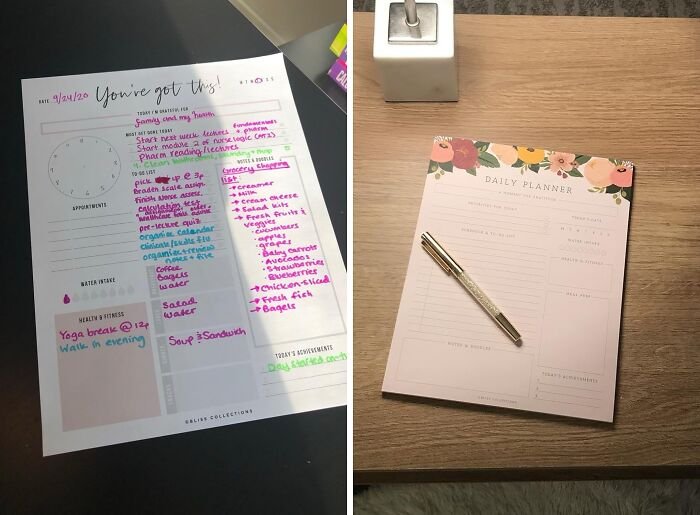 DATE 9/24/20 You've got this! M T W T F S S
TODAY I'M GRATEFUL FOR
family and my health
MUST GET DONE TODAY
Start next week lectures fundamentals + pharm
Start module 2 of nurselogic (ATI)
Pharm reading/lectures
4. Clean bathrooms, laundry + mop
TO-DO LIST
pick up @ 3p
Braden scale assign.
Finish Nurse assess.
Calculation test
healthcare
pre-lecture quiz
organize calendar
Clinicals/skills flu
organize + review
notes + file
APPOINTMENTS
NOTES & DOODLES
Grocery shopping
list:
→ creamer
→ milk
→ cream cheese
→ Salad kits
→ Fresh fruits &
veggies
• cucumbers
• apples
• grapes
• Baby carrots
• Avocados
• Strawberries
• Blueberries
→ Chicken-sliced
→ Fresh fish
→ Bagels
WATER INTAKE
Coffee
Bagels
Water
Salad
Water
Soup & Sandwich
HEALTH & FITNESS
Yoga break @ 12p
Walk in evening
TODAY'S ACHIEVEMENTS
Day started on-th
©BLISS COLLECTIONS
DAILY PLANNER
A MOMENT FOR GRATITUDE
PRIORITIES FOR TODAY
TODAY'S DATE
M T W T F S S
WATER INTAKE
SCHEDULE & TO-DO LIST
HEALTH & FITNESS
MEAL PREP
NOTES & DOODLES
TODAY'S ACHIEVEMENTS
1.
2.
3.
©BLISS COLLECTIONS